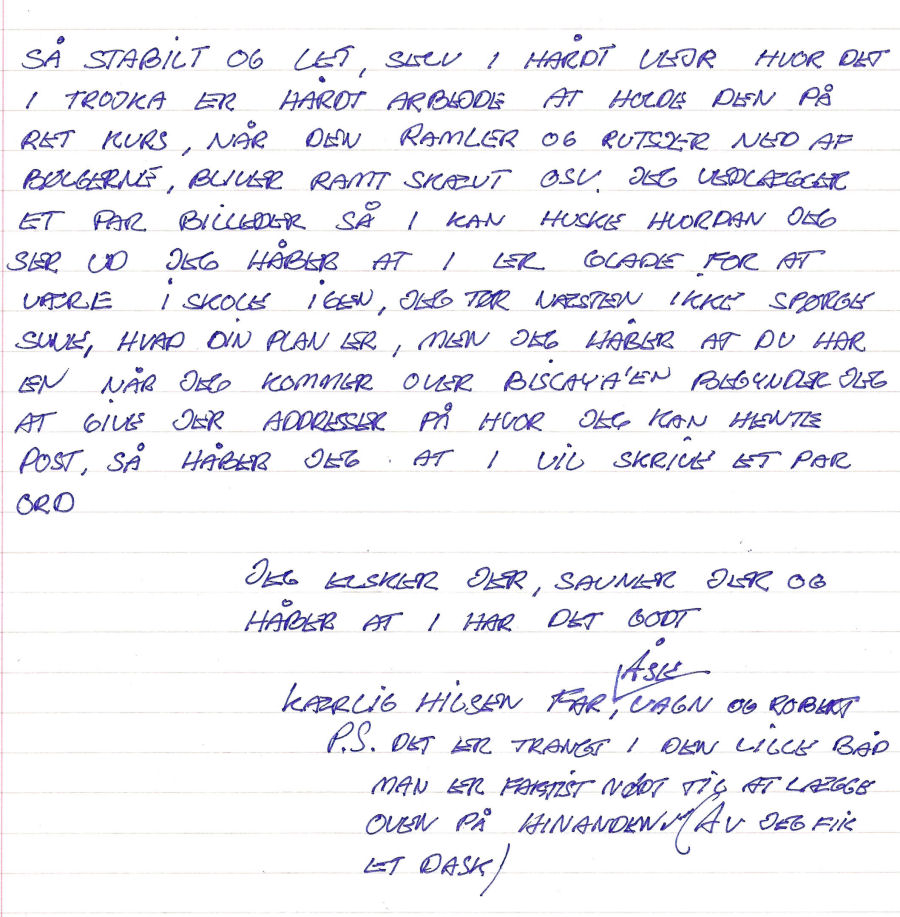 SÅ STABILT OG LET, SELV I HÅRDT VEJR HVOR DET
I TROJKA ER HÅRDT ARBEJDE AT HOLDE DEN PÅ
RET KURS, NÅR DEN RAMLER OG RUTSJER NED AF
BØLGERNE, BLIVER RAMT SKÆVT OSV. JEG VEDLÆGGER
ET PAR BILLEDER SÅ I KAN HUSKE HVORDAN JEG
SER UD JEG HÅBER AT I ER GLADE FOR AT
VÆRE I SKOLE IGEN, JEG TØR NÆSTEN IKKE SPØRGE
SUNE, HVAD DIN PLAN ER, MEN JEG HÅBER AT DU HAR
EN NÅR JEG KOMMER OVER BISCAYA'EN BEGYNDER JEG
AT GIVE JER ADDRESSER PÅ HVOR JEG KAN HENTE
POST, SÅ HÅBER JEG AT I VIL SKRIVE ET PAR
ORD
JEG ELSKER JER, SAVNER JER OG
HÅBER AT I HAR DET GODT
ÅSE
KÆRLIG HILSEN FAR, VAGN OG ROBERT
P.S. DET ER TRANGT I DEN LILLE BÅD
MAN ER FAKTIST NØDT TIL AT LÆGGE
OVEN PÅ HINANDEN (AV JEG FIK
ET DASK)